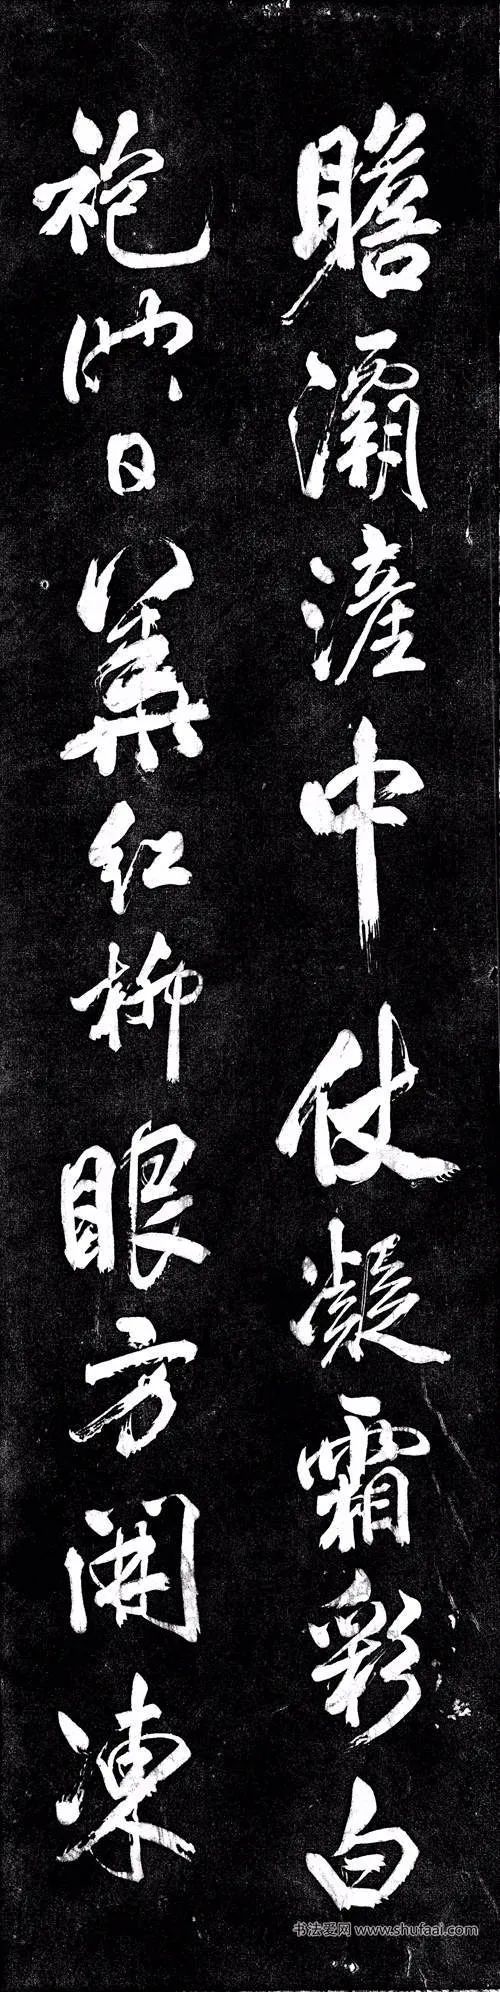 瞻灞浐中仗凝霜彩白
袍映日華红柳眼方開凍
书法爱网 www.shufaai.com